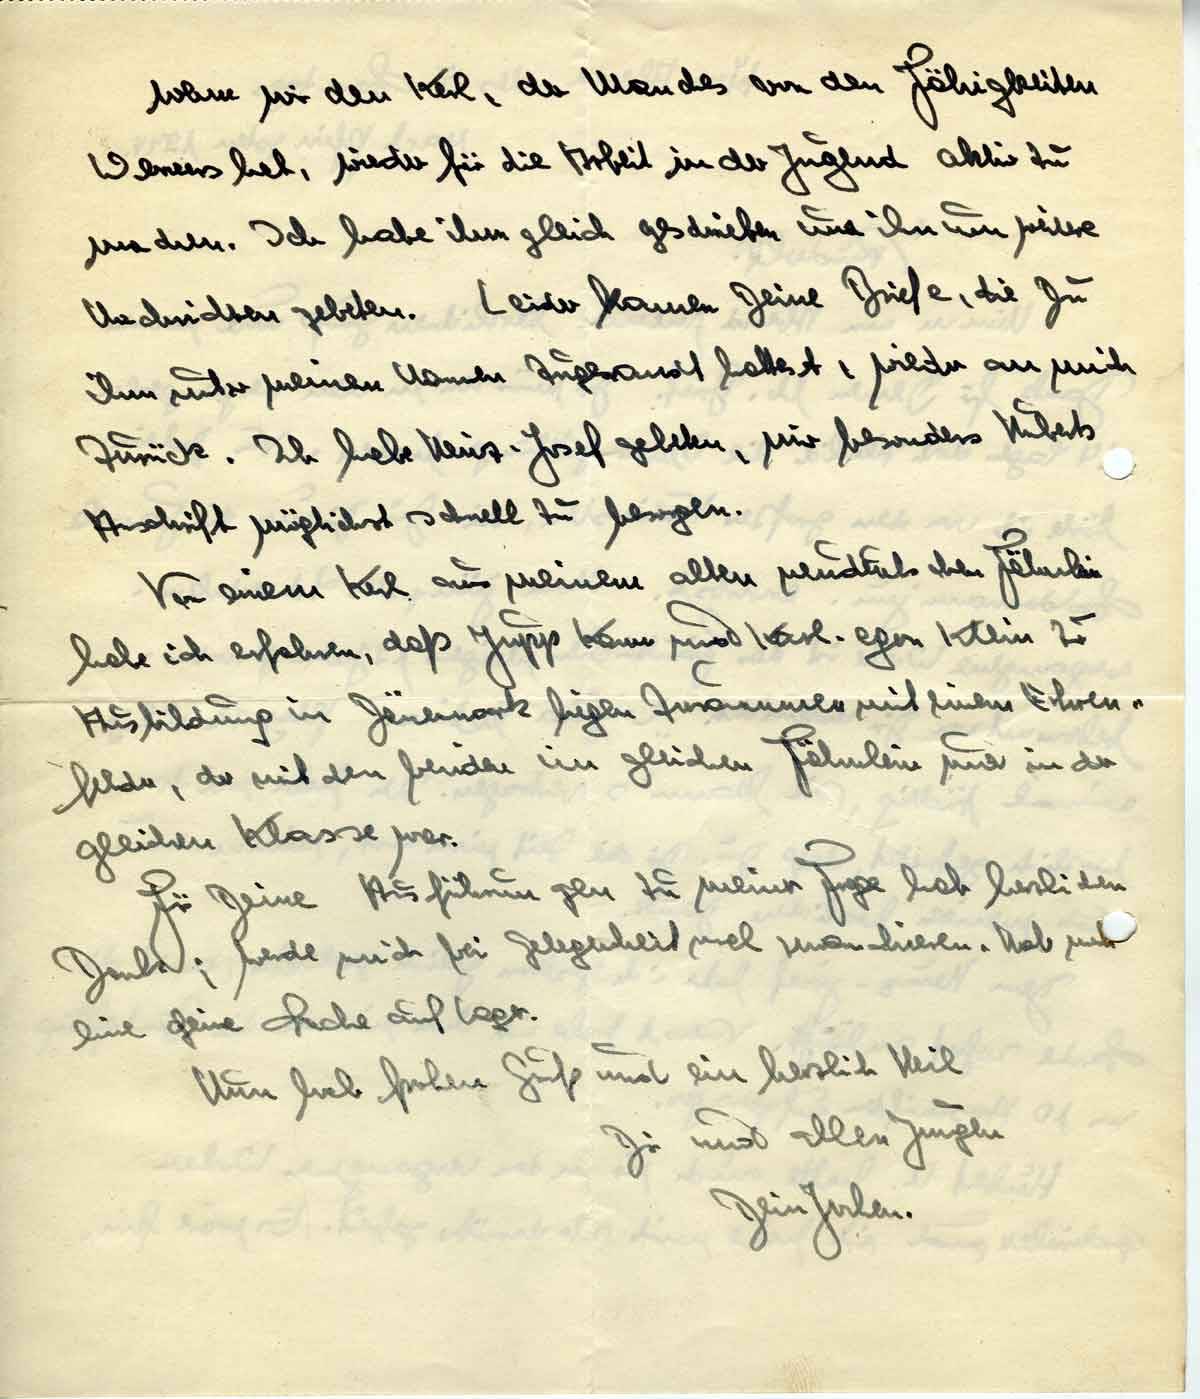 wenn wir den Kerl, der Manches von den Fähigkeiten
Werners hat, wieder für die Arbeit in der Jugend aktiv zu
machen. Ich habe ihm gleich geschrieben und ihn um weitere
Nachrichten gebeten. Leider kamen Deine Briefe, die Du
ihm unter meinen Namen zugesandt hattest, wieder an mich
zurück. Ich habe Heinz-Josef gebeten, mir besonders Huberts
Anschrift möglichst schnell zu besorgen.
Von einem Kerl aus meinem alten Fähnlein
habe ich erfahren, daß Jupp und Karl-Egon Klein zur
Ausbildung in Dänemark liegen zusammen mit einem Ehren-
felder, der mit den beiden im gleichen Fähnlein und in der
gleichen Klasse war.
Für Deine Ausführungen zu meiner Frage hab herzlichen
Dank; werde mich bei Gelegenheit mal revanchieren. Hab noch
eine Sache auf Lager.
Nun hab frohen Gruß und ein herzlich Heil
Dir und allen Jungen
Dein Jochen.